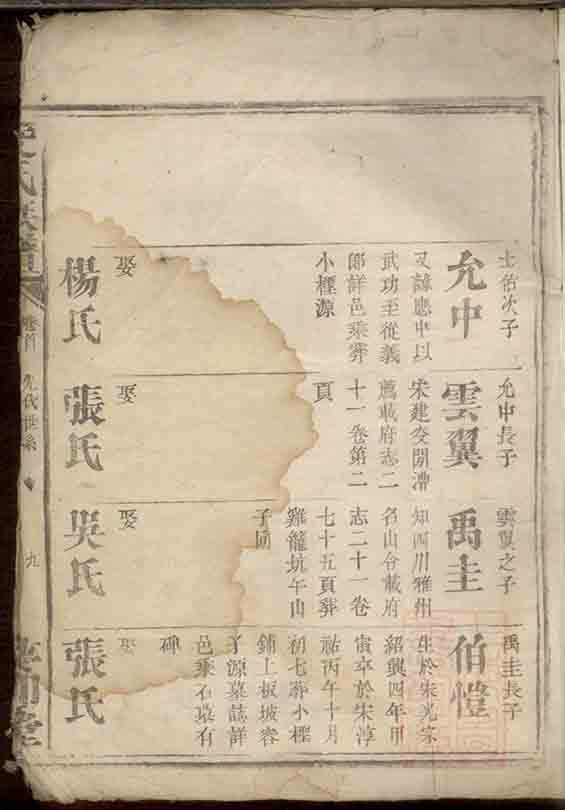 士佑次子
允中
又諱應中以
武功至從義
郎詳邑乘葬
小桱源
娶
楊氏
允中長子
雲翼
宋建炎開漕
薦載府志二
十一卷第二
頁
娶
張氏
雲翼之子
禹圭
知四川雅州
名山令載府
志二十一卷
七十五頁葬
雞龍坑午山
子向
娶
吳氏
禹圭長子
伯愷
生於宋光宗
紹興四年甲
寅卒於宋淳
祐丙午十月
初七葬小桱
鋪上板坡容
子源墓誌詳
邑乘石墓有
碑
娶
張氏
氏族譜
卷首
先代世系
九